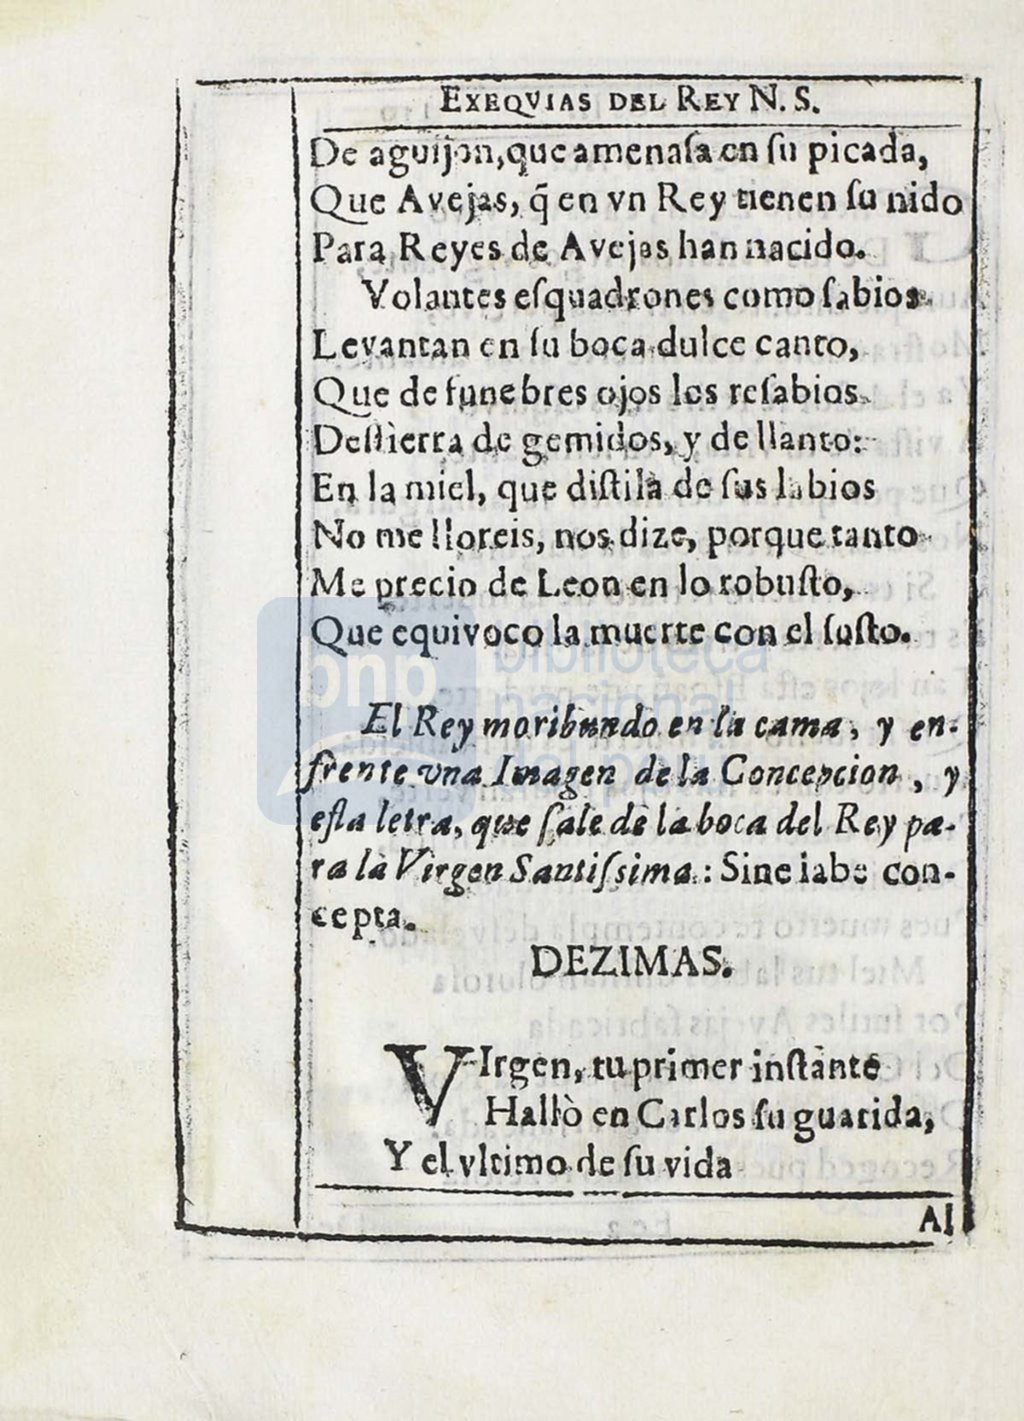 EXEQVIAS DEL REY N. S.
De aguijon, que amenaſa en ſu picada,
Que Avejas, q̃ en vn Rey tienen ſu nido
Para Reyes de Avejas han nacido.
Volantes eſquadrones como ſabios
Levantan en ſu boca dulce canto,
Que de funebres ojos los reſabios
Deſtierra de gemidos, y de llanto:
En la miel, que diſtila de ſus labios
No me lloreis, nos dize, porque tanto
Me precio de Leon en lo robuſto,
Que equivoco la muerte con el ſuſto.
El Rey moribundo en la cama, y en-
frente vna Imagen de la Concepcion, y
eſta letra, que ſale de la boca del Rey pa-
ra la Virgen Santiſsima: Sine labe con-
cepta.
DEZIMAS.
VIrgen, tu primer inſtante
Hallò en Carlos ſu guarida,
Y el vltimo de ſu vida
Al
bnp biblioteca
nacional
del perú